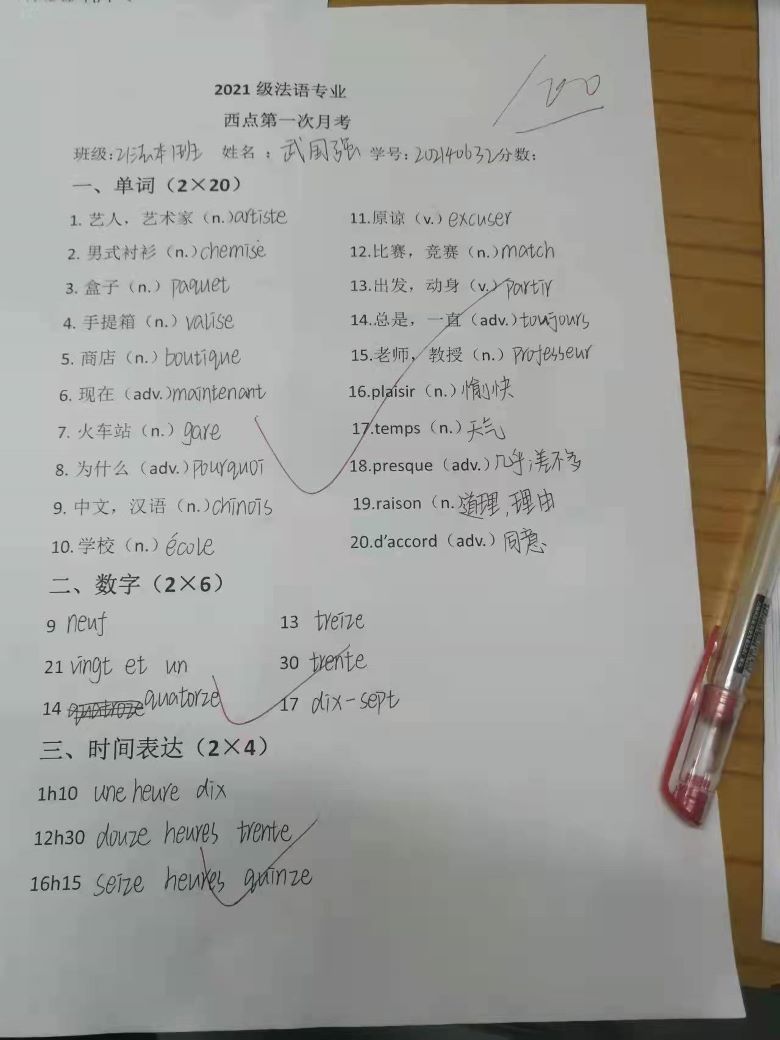 2021 级法语专业
西点第一次月考
班级:21法本1班 姓名：武国强 学号:202140632 分数:
/100
一、单词（2×20）
1. 艺人，艺术家（n.)artiste 11.原谅（v.）excuser
2. 男式衬衫（n.)chemise 12.比赛，竞赛（n.)match
3. 盒子（n.）paquet 13.出发，动身（v.）partir
4. 手提箱（n.）valise 14.总是，一直(adv.)toujours
5. 商店（n.）boutique 15.老师，教授（n.）professeur
6. 现在（adv.)maintenant 16.plaisir（n.）愉快
7. 火车站（n.）gare 17.temps（n.）天气
8. 为什么（adv.)pourquoi 18.presque（adv.）几乎,差不多
9. 中文，汉语（n.)chinois 19.raison（n. 道理,理由
10. 学校（n.）école 20.d'accord（adv.）同意
二、数字（2×6）
9 neuf 13 treize
21 vingt et un 30 trente
14 quatorze 17 dix-sept
三、时间表达（2×4）
1h10 une heure dix
12h30 douze heures trente
16h15 seize heures quinze